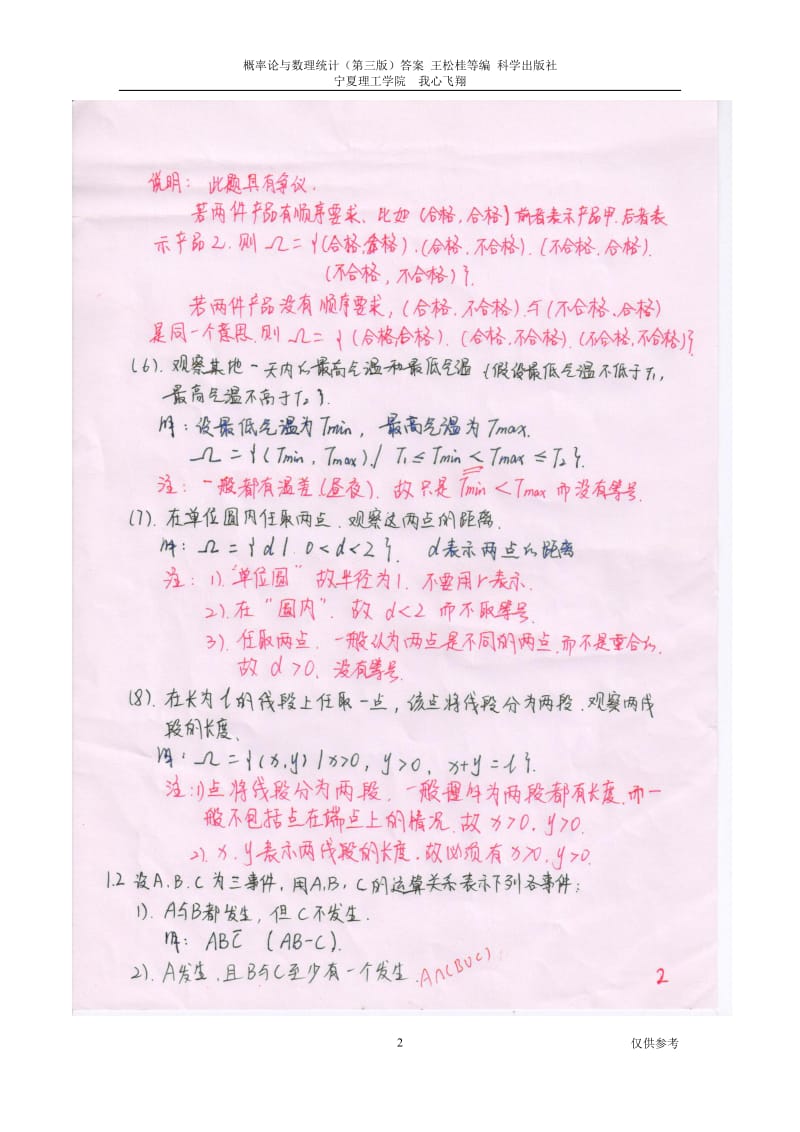 概率论与数理统计（第三版）答案 王松桂等编 科学出版社
宁夏理工学院 我心飞翔
说明：此题具有争议.
若两件产品有顺序要求、比如（合格,合格）前者表示产品甲.后者表
示产品乙.则 Ω={(合格,合格).(合格,不合格).(不合格,合格).
(不合格,不合格)}.
若两件产品没有顺序要求,(合格.不合格)与(不合格.合格)
是同一个意思.则 Ω={(合格,合格).(合格,不合格).(不合格,不合格)}
(6).观察某地一天内的最高气温和最低气温(假设最低气温不低于T₁,
最高气温不高于T₂).
解:设最低气温为Tmin, 最高气温为Tmax.
Ω={(Tmin, Tmax)| T₁≤Tmin<Tmax≤T₂}.
注:一般都有温差(昼夜).故只是Tmin<Tmax而没有等号.
(7).在单位圆内任取两点.观察这两点的距离.
解:Ω={d|.0<d<2}. d表示两点的距离
注:1)."单位圆"故半径为1.不要用r表示.
2).在"圆内".故d<2而不取等号.
3).任取两点.一般认为两点是不同的两点.而不是重合的.
故d>0.没有等号.
(8).在长为l的线段上任取一点,该点将线段分为两段.观察两线
段的长度.
解:Ω={(x,y)|x>0, y>0, x+y=l}.
注:1)点将线段分为两段.一般理解为两段都有长度.而一
般不包括点在端点上的情况.故x>0.y>0.
2).x.y表示两线段的长度.故必须有x>0,y>0.
1.2 设A.B.C为三事件,用A,B,C的运算关系表示下列各事件:
1).A与B都发生,但C不发生.
解:ABC̅ (AB-C).
2).A发生,且B与C至少有一个发生.A∩(B∪C)
2
2
仅供参考